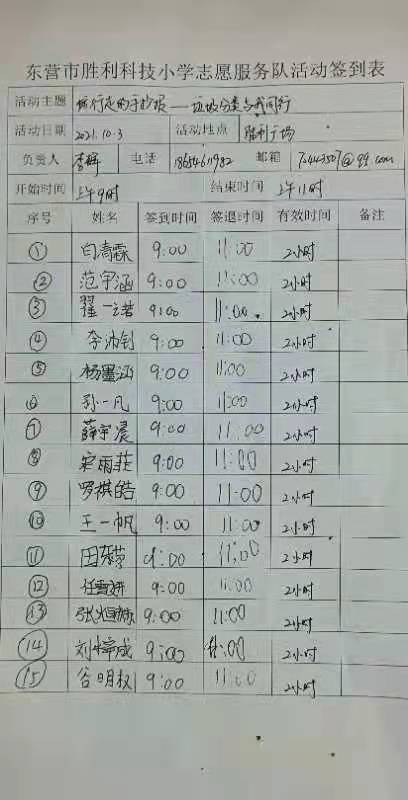 东营市胜利科技小学志愿服务队活动签到表
活动主题 旅行走的手抄报——垃圾分类与我同行
活动日期 2021.10.3 活动地点 胜利广场
负责人 李辉 电话 18654611982 邮箱 @qq.com
开始时间 上午9时 结束时间 上午11时
序号 姓名 签到时间 签退时间 有效时间 备注
① 白清霖 9:00 11:00 2小时
② 范宇涵 9:00 11:00 2小时
③ 翟一诺 9:00 11:00 2小时
④ 李沛钊 9:00 11:00 2小时
⑤ 杨墨涵 9:00 11:00 2小时
⑥ 孙一凡 9:00 11:00 2小时
⑦ 薛宇晨 9:00 11:00 2小时
⑧ 宋雨菲 9:00 11:00 2小时
⑨ 罗祺皓 9:00 11:00 2小时
⑩ 王一帆 9:00 11:00 2小时
⑪ 田 9:00 11:00 2小时
⑫ 任雪妍 9:00 11:00 2小时
⑬ 张恒赫 9:00 11:00 2小时
⑭ 刘梓成 9:00 11:00 2小时
⑮ 谷明叡 9:00 11:00 2小时